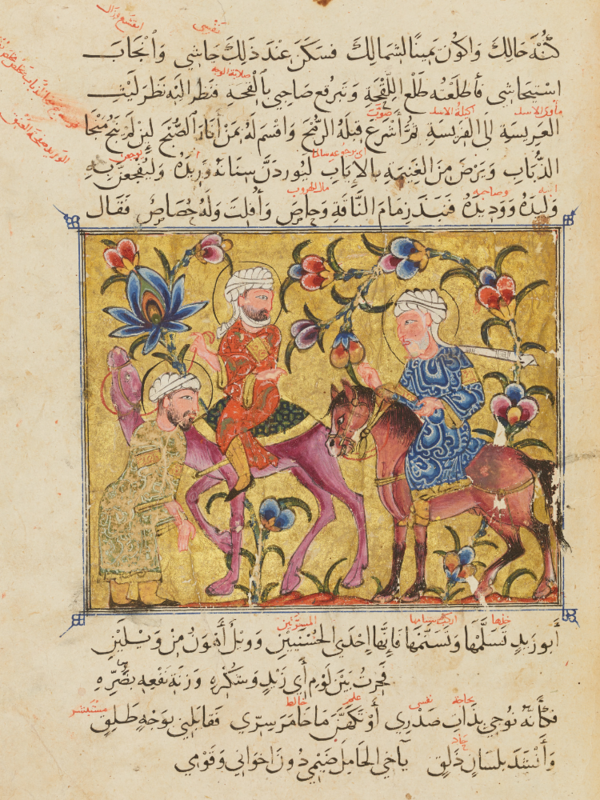 كنه حالك واكون يمينا لشمالك فسكن عند ذلك جاشي وانجاب
استيحاشي فاطلعته طلع اللقحة وتبرقع صاحبي بالقحة فنظر اليه نظر ليث
مأوى الاسد اكيلة الاسد
العريسة الى الفريسة ثم اشرع قبله الرمح واقسم له بمن انار الصبح لين لم ينج منجا
الذباب ويرض من الغنيمة بالاياب ليوردن سنانه وريده وليفجعن به
وليده ووديده فنبذ زمام الناقة وحاص وأفلت وله حصاص فقال
أبو زيد تسلمها وتسنمها فانها احدى الحسنيين وويل أهون من ويلين
فحرت بين لوم أبي زيد وشكره وزنة نفعه بضره
فكأنه نوجي بذات صدري أو تكهن ما خامر سري فقابلني بوجه طلق
وأنشد بلسان ذلق يا أخي الحامل ضيمي دون اخواني وقومي